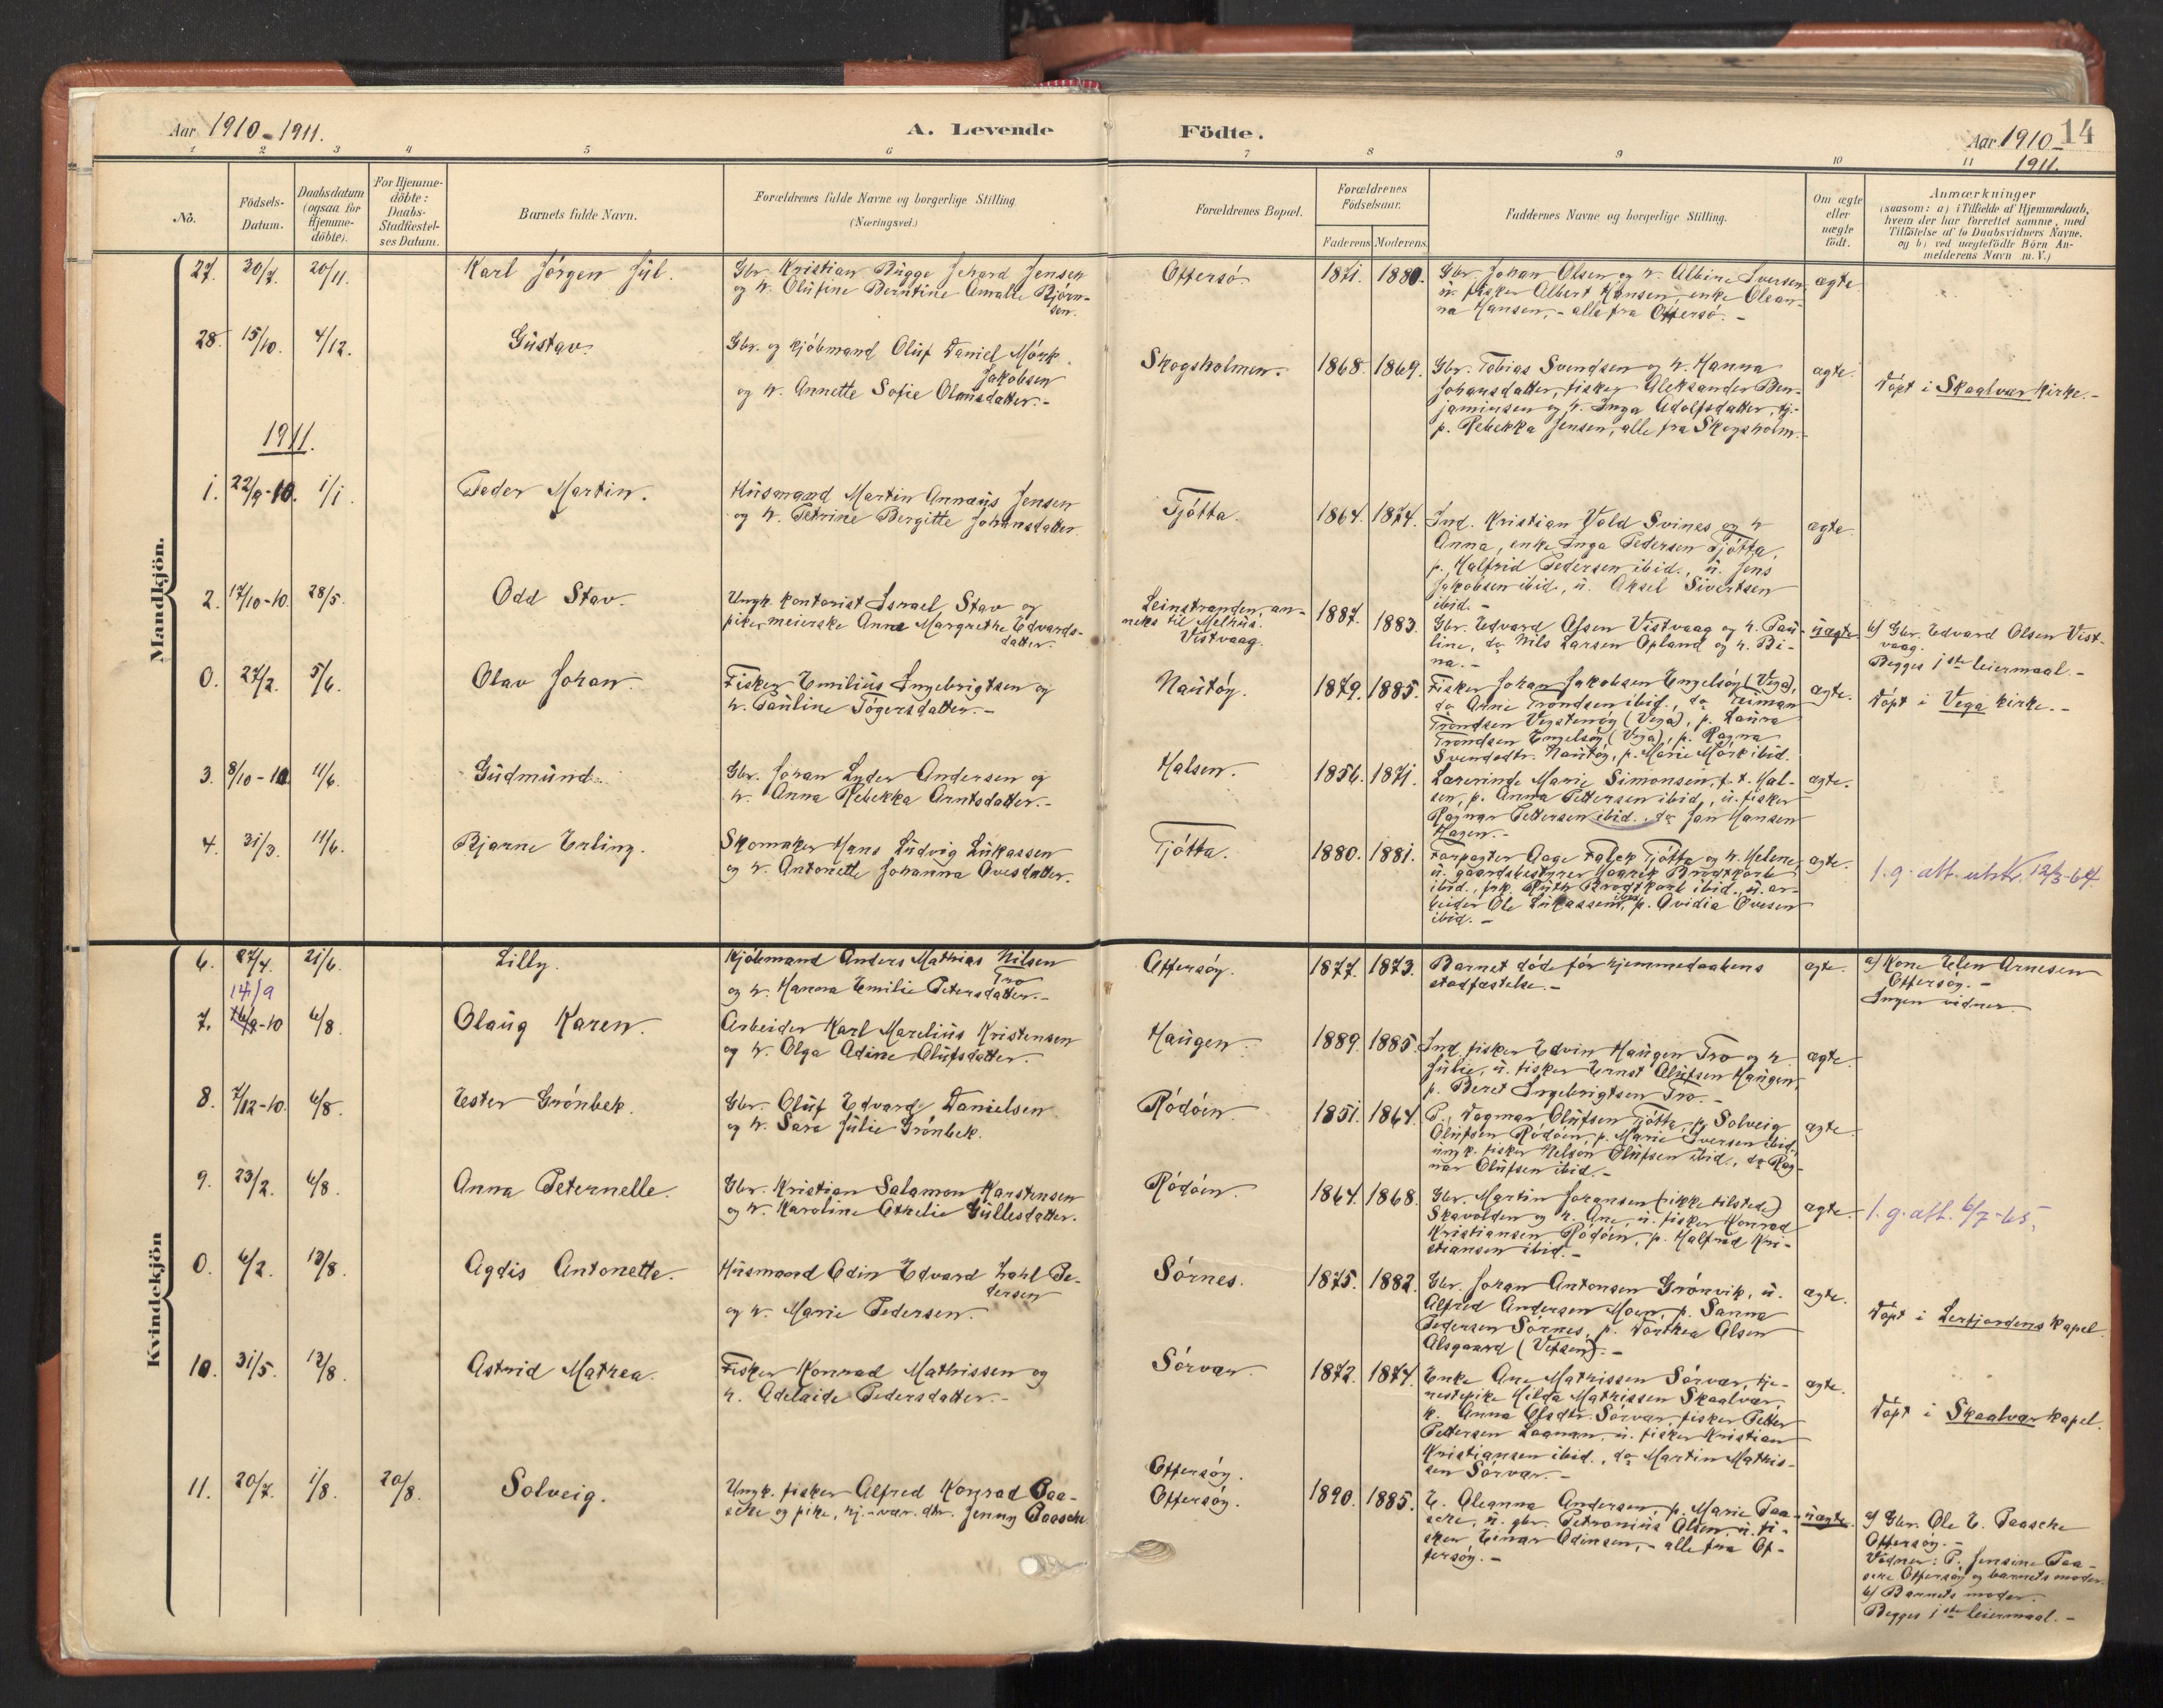 Aar 1910-1911.
A. Levende
Födte.
Aar 1910-
1911.
14
1 2 3 4 5 6 7 8 9 10 11
No.
Födsels-
Datum.
Daabsdatum
(ogsaa for
Hjemme-
döbte).
For Hjemme-
döbte:
Daabs-
Stadfæstel-
ses Datum.
Barnets fulde Navn.
Forældrenes fulde Navne og borgerlige Stilling.
(Næringsvei.)
Forældrenes Bopæl.
Forældrenes
Födselsaar.
Faderens Moderens
Faddernes Navne og borgerlige Stilling.
Om ægte
eller
uægte
födt.
Anmærkninger
(saasom: a) i Tilfælde af Hjemmedaab,
hvem der har forrettet samme, med
Tilföielse af to Daabsvidners Navne.
og b) ved uægtefödte Börn An-
melderens Navn m. V.)
Mandkjön.
27. 30/7. 20/11. Karl Jörgen Jül.
Gbr. Kristian Bügge Jensen
og h. Olüfine Berntine Amalie Björn-
sen.
Offersö. 1871. 1880.
Gbr. Johan Olsen og h. Albine Iversen,
ü. fisker Albert Hansen, enke Olean-
na Hansen, - alle fra Offersö. -
ægte.
28. 15/10. 4/12. Güstav.
Gbr. og kjöbmand Olüf Daniel Mörk
Jakobsen
og h. Annette Sofie Olaüsdatter. -
Skogsholmen. 1868. 1869.
Gbr. Tobias Svendsen og h. Hanna
Johansdatter, fisker Aleksander Ben-
jaminsen og h. Inga Adolfsdatter, tj.-
p. Rebekka Jensen, alle fra Skogsholm. -
ægte.
Döpt i Skaalvær kirke. -
1911.
1. 22/9-10. 1/1. Peder Martin.
Hüsmand Martin Annæüs Jensen
og h. Petrine Bergitte Johansdatter.
Tjötta. 1864. 1874.
Ind. Kristian Vold Svines og h
Anna, enke Inga Pedersen Tjötta,
p. Halfrid Pedersen ibid., ü. Jens
Jakobsen ibid., ü. Aksel Sivertsen
ibid. -
ægte.
2. 17/10-10. 28/5. Odd Stav.
Ungk. kontorist Israel Stav og
pike, meierske Anna Margrethe Edvards-
datter.
Leinstranden, an-
neks til Melhüs.
Vistvaag.
1887. 1883.
Gbr. Edvard Olsen Vistvaag og h. Paü-
line, do Nils Larsen Opland og h. Bi-
na. -
üægte.
b) Gbr. Edvard Olsen Vist-
vaag.
Begges 1ste leiermaal. -
0. 27/2. 5/6. Olav Johan.
Fisker Emiliüs Ingebrigtsen og
h. Paüline Tögersdatter. -
Naütöy. 1879. 1885.
Fisker Johan Jakobsen Engelsöy (Vega),
do Arne Trondsen ibid., do Teiman
Trondsen Vegstenöy (Vega), p. Laüra
Trondsen Engelsöy (Vega), p. Ragna
Svendsdtr. Naütöy, p. Marie Mörk ibid.
ægte.
Döpt i Vega kirke. -
3. 8/10-10 11/6. Güdmünd.
Gbr. Johan Lyder Andersen og
h. Anna Rebekka Arntsdatter. -
Halsen. 1856. 1871.
Lærerinde Marie Simonsen, f. t. Hal-
sen, p. Anna Pettersen ibid., ü. fisker
Ragnar Pettersen ibid., do Jan Hansen
Hagen. -
ægte.
4. 31/3. 11/6. Bjarne Erling.
Skomaker Hans Lüdvig Lükassen
og h. Antonette Johanna Ovesdatter.
Tjötta. 1880. 1881.
Forpagter Aage Falck Tjötta og h. Helene,
ü. gaardsbestyrer Henrik Brodtkorb
ibid., frk. Rüth Brodtkorb ibid., ü. ar-
beider Ole Lükassen ibid, p. Ovidia Ovesen
ibid. -
ægte.
1. g. att. utstr. 12/3-64.
Kvindekjön
6. 27/4. 21/6. Lilly.
Kjöbmand Anders Mathias Nilsen
Tro
og h. Hanna Emilie Petersdatter. -
Offersöy. 1877. 1873.
Barnet döde för hjemmedaabens
stadfæstelse. -
ægte.
a) Kone Elen Arnesen
Offersöy. -
Ingen vidner.
14/9
7. 16/9-10 6/8. Olaüg Karen.
Arbeider Karl Mareliüs Kristensen
og h. Olga Adine Olüfsdatter. -
Haügen. 1889. 1885.
Ind. fisker Edvin Haügen Tro og h
Jülie, ü. fisker Ernst Olüfsen Haügen,
p. Beret Ingebrigtsen Tro. -
ægte.
8. 7/12-10. 6/8. Ester Grönbek.
Gbr. Olüf Edvard Danielsen
og h. Sara Jülie Grönbek.
Rödöen. 1851. 1864.
P. Dagmar Olüfsen Tjötta, p. Solveig
Olüfsen Rödöen, p. Marie Iversen ibid,
üngk. fisker Nelson Olüfsen ibid., do Rag-
nar Olüfsen ibid. -
ægte.
9. 23/2. 6/8. Anna Peternelle.
Gbr. Kristian Salamon Karstensen
og h. Karoline Athelie Güllesdatter.
Rödöen. 1864. 1868.
Gbr. Martin Johansen (ikke tilstede)
Skavolden og h. Ane, ü. fisker Konrad
Kristiansen Rödöen, p. Halfrid Kri-
stiansen ibid. -
ægte.
1. g. att. 6/7-65.
0. 6/2. 13/8. Agdis Antonette.
Hüsmand Odin Edvard Zahl Pe-
dersen
og h. Marie Pedersen.
Sörnes. 1875. 1882.
Gbr. Johan Antonsen Grönvik, ü.
Alfred Andersen Moen, p. Sanna
Pedersen Sörnes, p. Dorthea Olsen
Alsgaard (Vefsen). -
ægte.
Döpt i Leirfjordens kapel.
10. 31/5. 13/8. Astrid Mathea.
Fisker Konrad Mathissen og
h. Adelaide Pedersdatter. -
Sörvær. 1872. 1874.
Enke Ane Mathissen Sörvær, tje-
nestepike Hilda Mathissen Skaalvær,
k. Anna Olsdtr. Sörvær, fisker Petter
Pettersen Laanan, ü. fisker Kristian
Kristiansen ibid., do Martin Mathis-
sen Sörvær. -
ægte.
Döpt i Skaalvær kapel.
11. 20/7. 1/8. 20/8. Solveig.
Ungk. fisker Alfred Konrad Paa-
sche og pike, hj.-vær. dtr. Jenny Paasche
Offersöy.
Offersöy.
1890. 1885.
E. Oleanna Andersen, p. Marie Paa-
sche, ü. gbr. Petroniüs Olsen, ü. fi-
sker Einar Odinsen, - alle fra Of-
fersöy. -
üægte.
a) Gbr. Ole E. Paasche
Offersöy. -
Vidner: P. Jensine Paa-
sche Offersöy og barnets moder.
b) Barnets moder.
Begges 1ste leiermaal. -